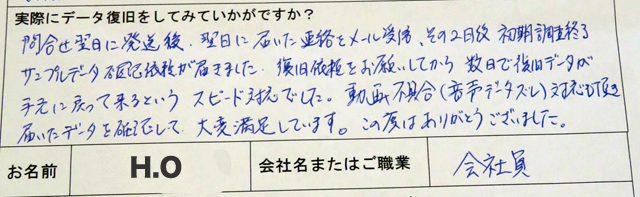 実際にデータ復旧をしてみていかがですか?
問合せ翌日に発送後、翌日に届いた連絡をメール受信、その2日後 初期調査終了
サンプルデータ確認依頼が届きました。復旧依頼をお願いしてから 数日で復旧データが
手元に戻って来るという スピード対応でした。動画不具合(音声データズレ)対応も頂き
届いたデータを確認して、大変満足しています。この度はありがとうございました。
お名前 H.O 会社名またはご職業 会社員